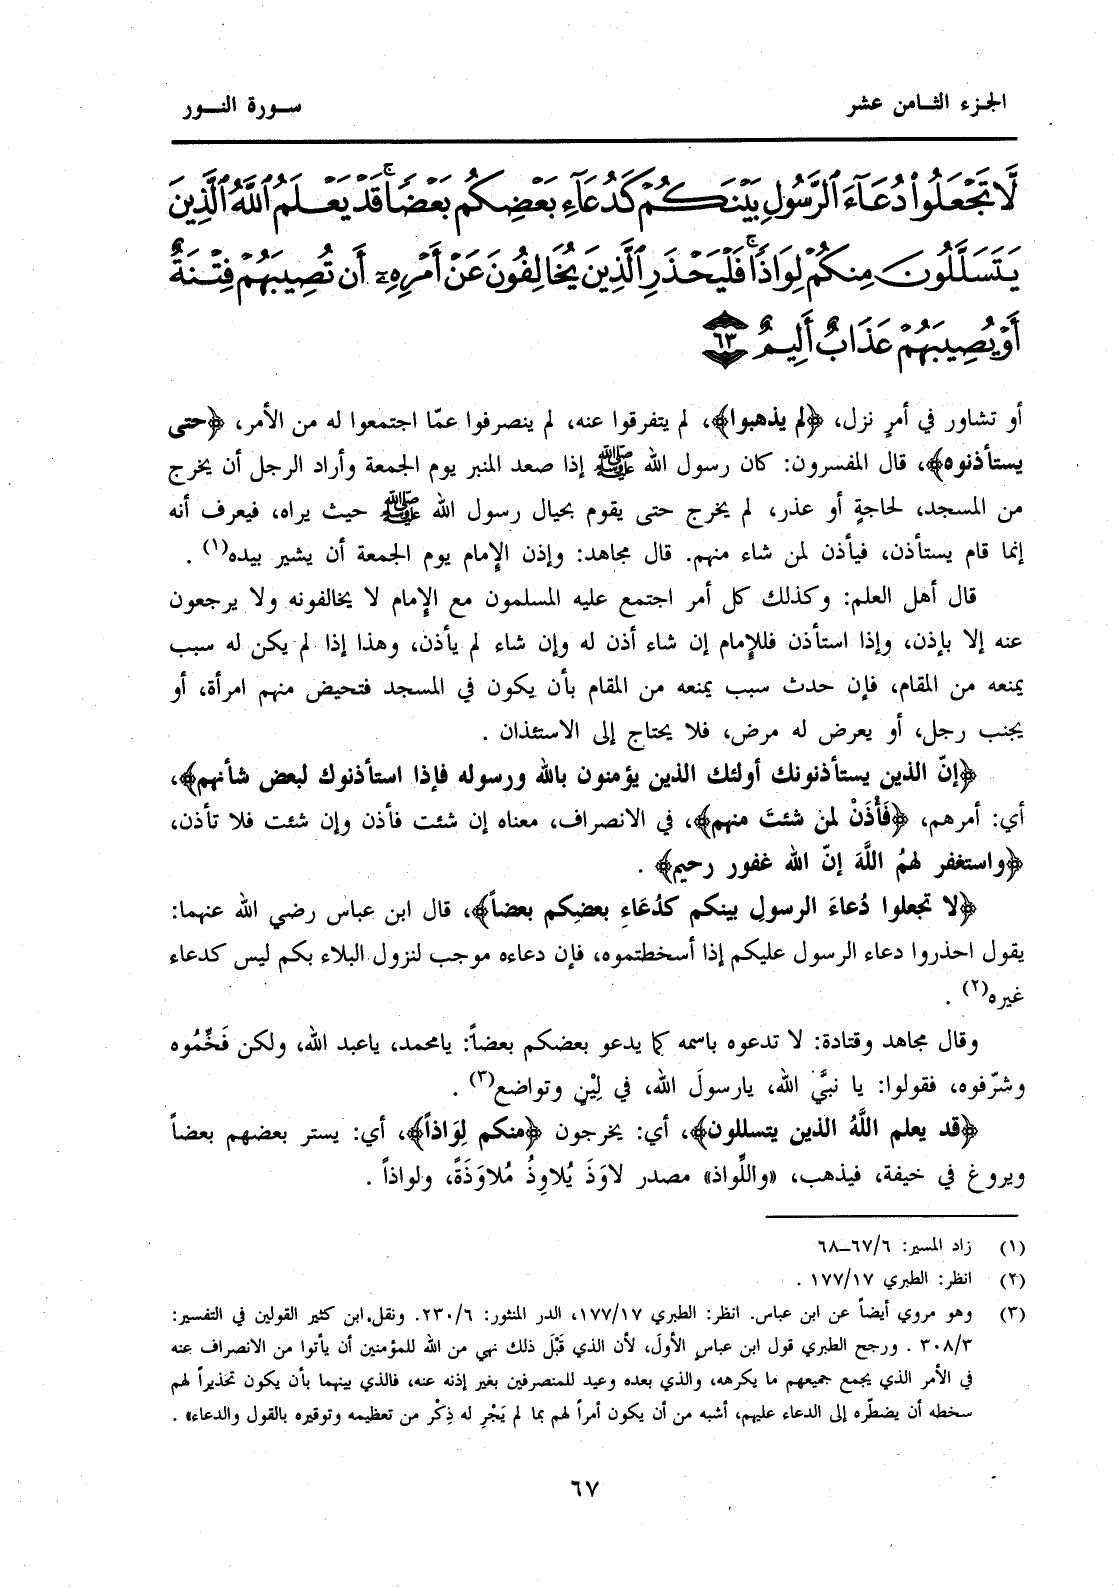 الجزء الثامن عشر
سورة النور
لَّا تَجْعَلُوا۟ دُعَآءَ ٱلرَّسُولِ بَيْنَكُمْ كَدُعَآءِ بَعْضِكُم بَعْضًا ۚ قَدْ يَعْلَمُ ٱللَّهُ ٱلَّذِينَ
يَتَسَلَّلُونَ مِنكُمْ لِوَاذًا ۚ فَلْيَحْذَرِ ٱلَّذِينَ يُخَالِفُونَ عَنْ أَمْرِهِۦٓ أَن تُصِيبَهُمْ فِتْنَةٌ
أَوْ يُصِيبَهُمْ عَذَابٌ أَلِيمٌ ٦٣
أو تشاور في أمرٍ نزل، ﴿لم يذهبوا﴾، لم يتفرقوا عنه، لم ينصرفوا عمّا اجتمعوا له من الأمر، ﴿حتى
يستأذنوه﴾، قال المفسرون: كان رسول الله ﷺ إذا صعد المنبر يوم الجمعة وأراد الرجل أن يخرج
من المسجد، لحاجةٍ أو عذر، لم يخرج حتى يقوم بحيال رسول الله ﷺ حيث يراه، فيعرف أنه
إنما قام يستأذن، فيأذن لمن شاء منهم. قال مجاهد: وإذن الإمام يوم الجمعة أن يشير بيده(١) .
قال أهل العلم: وكذلك كل أمر اجتمع عليه المسلمون مع الإمام لا يخالفونه ولا يرجعون
عنه إلا بإذن، وإذا استأذن فللإمام إن شاء أذن له وإن شاء لم يأذن، وهذا إذا لم يكن له سبب
يمنعه من المقام، فإن حدث سبب يمنعه من المقام بأن يكون في المسجد فتحيض منهم امرأة، أو
يجنب رجل، أو يعرض له مرض، فلا يحتاج إلى الاستئذان .
﴿إنّ الذين يستأذنونك أولئك الذين يؤمنون بالله ورسوله فإذا استأذنوك لبعض شأنهم﴾،
أي: أمرهم، ﴿فَأْذَنْ لمن شئتَ منهم﴾، في الانصراف، معناه إن شئت فأذن وإن شئت فلا تأذن،
﴿واستغفر لهمُ اللَّهَ إنّ الله غفور رحيم﴾ .
﴿لا تجعلوا دُعاءَ الرسولِ بينكم كدُعَاءِ بعضِكم بعضاً﴾، قال ابن عباس رضي الله عنهما:
يقول احذروا دعاء الرسول عليكم إذا أسخطتموه، فإن دعاءه موجب لنزول البلاء بكم ليس كدعاء
غيره(٢) .
وقال مجاهد وقتادة: لا تدعوه باسمه كما يدعو بعضكم بعضاً: يامحمد، ياعبد الله، ولكن فَخِّمُوه
وشرّفوه، فقولوا: يا نبيَّ الله، يارسولَ الله، في لِيْنٍ وتواضع(٣) .
﴿قد يعلم اللَّهُ الذين يتسللون﴾، أي: يخرجون ﴿منكم لِوَاذاً﴾، أي: يستر بعضهم بعضاً
ويروغ في خيفة، فيذهب، «واللِّواذ» مصدر لاوَذَ يُلاوِذُ مُلاوَذَةً، ولواذاً .
(١) زاد المسير: ٦/٦٧ــ٦٨
(٢) انظر: الطبري ١٧/١٧٧ .
(٣) وهو مروي أيضاً عن ابن عباس. انظر: الطبري ١٧/١٧٧، الدر المنثور: ٦/٢٣٠. ونقل ابن كثير القولين في التفسير:
٣٠٨/٣ . ورجح الطبري قول ابن عباسٍ الأولَ، لأن الذي قَبْلَ ذلك نهي من الله للمؤمنين أن يأتوا من الانصراف عنه
في الأمر الذي يجمع جميعهم ما يكرهه، والذي بعده وعيد للمنصرفين بغير إذنه عنه، فالذي بينهما بأن يكون تحذيراً لهم
سخطه أن يضطّره إلى الدعاء عليهم، أشبه من أن يكون أمراً لهم بما لم يَجْرِ له ذِكْر من تعظيمه وتوقيره بالقول والدعاء» .
٦٧